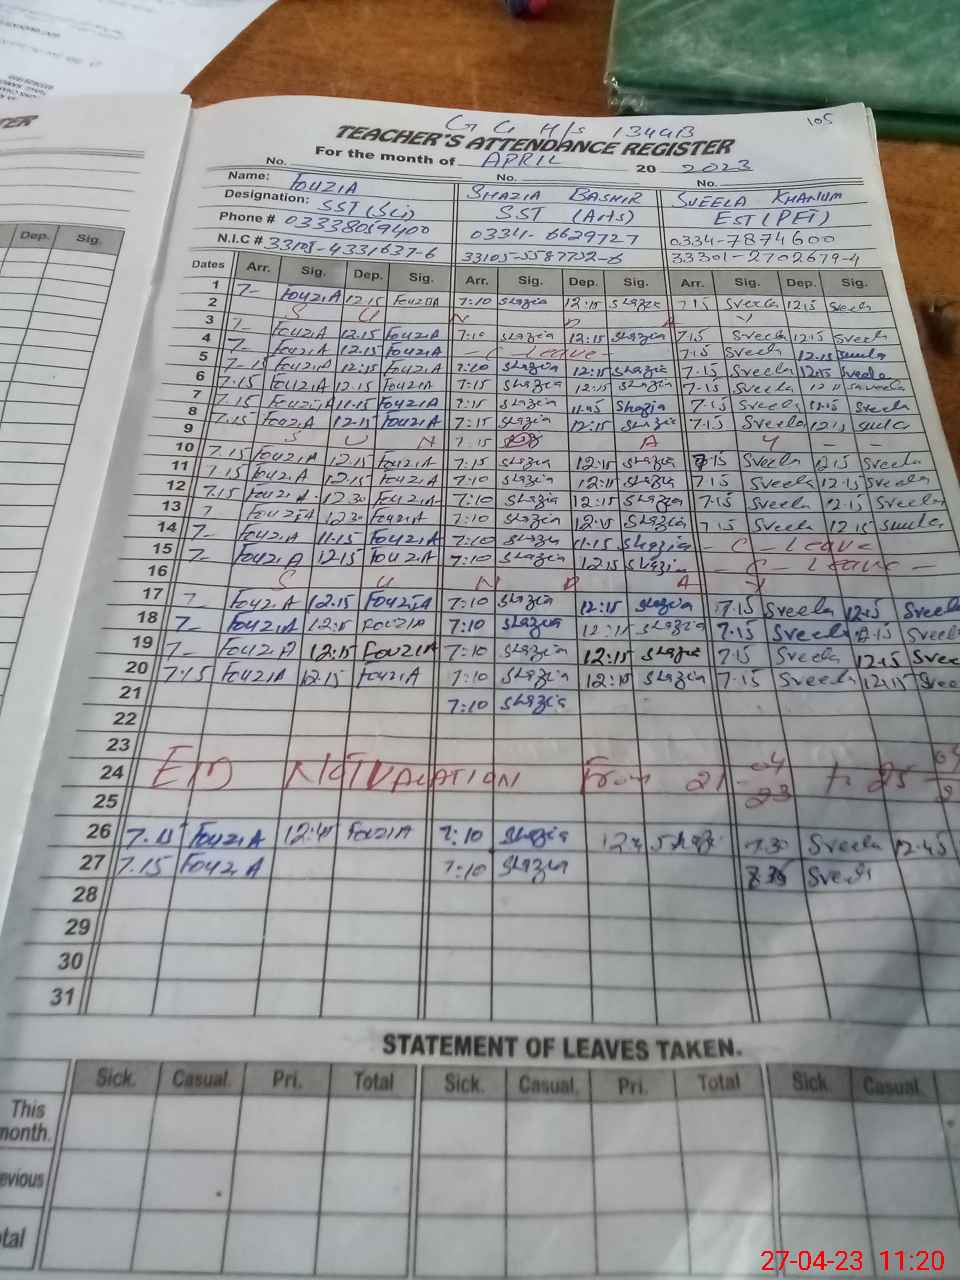 105
G G H/s 134GB
TEACHER'S ATTENDANCE REGISTER
For the month of APRIL 20 2023
No. No. No.
Name: FOUZIA SHAZIA BASHIR SVEELA KHANUM
Designation: SST (Sci) SST (Arts) EST (PET)
Phone # 03338019400 0334-6629727 0334-7874600
N.I.C # 33105-5587752-6 33301-2702679-4
Dates Arr. Sig. Dep. Sig. Arr. Sig. Dep. Sig. Arr. Sig. Dep. Sig.
1 7- FOUZIA 12.15 FOUZIA 7:10 Shazia 12:15 Shazia 7.15 Sveela 12.15 Sveela
2 S U N D A Y
3 7- FOUZIA 12.15 FOUZIA 7:10 Shazia 12:15 Shazia 7.15 Sveela 12.15 Sveela
4 7- FOUZIA 12.15 FOUZIA - C - Leave - 7.15 Sveela 12.15 Sveela
5 7-15 FOUZIA 12:15 FOUZIA 7:10 Shazia 12:15 Shazia 7.15 Sveela 12.15 Sveela
6 7.15 FOUZIA 12.15 FOUZIA 7:15 Shazia 12:15 Shazia 7.15 Sveela Sveela
7 7.15 FOUZIA 11.15 FOUZIA 7:15 Shazia Shazia 7.15 Sveela 11.15 Sveela
8 7.15 FOUZIA 12.15 FOUZIA 7:15 Shazia 12:15 Shazia 7.15 Sveela 12.15 Sveela
9 S U N 7:15 A Y - -
10 7.15 FOUZIA 12.15 FOUZIA 7:15 Shazia 12:15 Shazia 7.15 Sveela 12.15 Sveela
11 7.15 FOUZIA 12.15 FOUZIA 7:10 Shazia 12:15 Shazia 7.15 Sveela 12.15 Sveela
12 7.15 FOUZIA 12.30 FOUZIA 7:10 Shazia 12:15 Shazia 7.15 Sveela 12.15 Sveela
13 7 FOUZIA 12.30 FOUZIA 7:10 Shazia 12:15 Shazia 7.15 Sveela 12.15 Sveela
14 7- FOUZIA 11.15 FOUZIA 7:10 Shazia 11.15 Shazia - C - Leave
15 7- FOUZIA 12.15 FOUZIA 7:10 Shazia 12.15 Shazia - C - Leave -
16 S U N D A Y
17 7- FOUZIA 12.15 FOUZIA 7:10 Shazia 12:15 Shazia 7.15 Sveela 12.15 Sveela
18 7- FOUZIA 12:15 FOUZIA 7:10 Shazia 12:15 Shazia 7.15 Sveela 12.15 Sveela
19 7- FOUZIA 12:15 FOUZIA 7:10 Shazia 12:15 Shazia 7.15 Sveela 12.15 Svee
20 7.15 FOUZIA 12.15 FOUZIA 7:10 Shazia 12:15 Shazia 7.15 Sveela 12.15 Svee
21 7:10 Shazia
22
23
24 From 21-04-23 to 25
25
26 7.15 FOUZIA FOUZIA 7:10 Shazia 7.30 Sveela 12.45
27 7.15 FOUZIA 7:10 Shazia Sveela
28
29
30
31
STATEMENT OF LEAVES TAKEN.
Sick. Casual. Pri. Total Sick. Casual. Pri. Total Sick. Casual.
This
month.
evious
tal
TER
Dep. Sig.
27-04-23 11:20